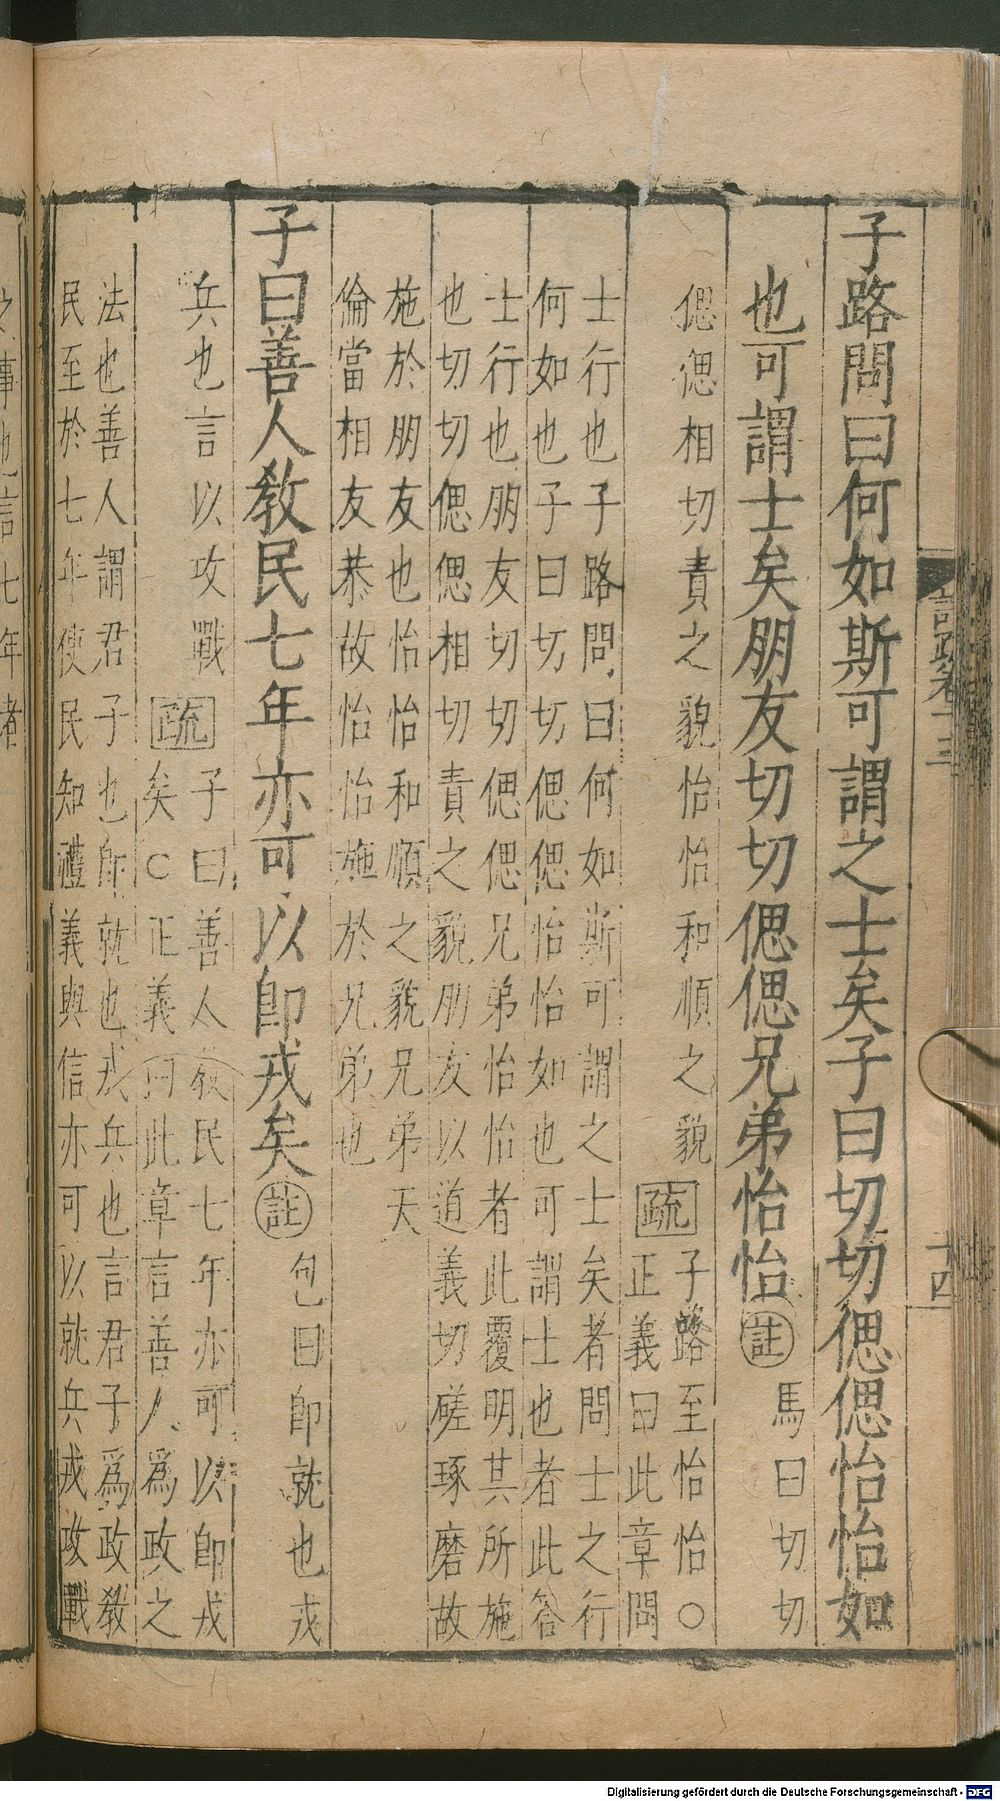 子路問曰何如斯可謂之士矣子曰切切偲偲怡怡如
也可謂士矣朋友切切偲偲兄弟怡怡
註
馬曰切切
偲偲相切責之貌怡怡和順之貌
疏
子路至怡怡○
正義曰此章問
士行也子路問曰何如斯可謂之士矣者問士之行
何如也子曰切切偲偲怡怡如也可謂士也者此答
士行也朋友切切偲偲兄弟怡怡者此覆明其所施
也切切偲偲相切責之貌朋友以道義切磋琢磨故
施於朋友也怡怡和順之貌兄弟天
倫當相友恭故怡怡施於兄弟也
子曰善人教民七年亦可以即戎矣
註
包曰即就也戎
兵也言以攻戰
疏
子曰善人教民七年亦可以即戎
矣○正義曰此章言善人為政之
法也善人謂君子也即就也戎兵也言君子為政教
民至於七年使民知禮義與信亦可以就兵戎攻戰
之事也言七年者
十四
Digitalisierung gefördert durch die Deutsche Forschungsgemeinschaft - DFG